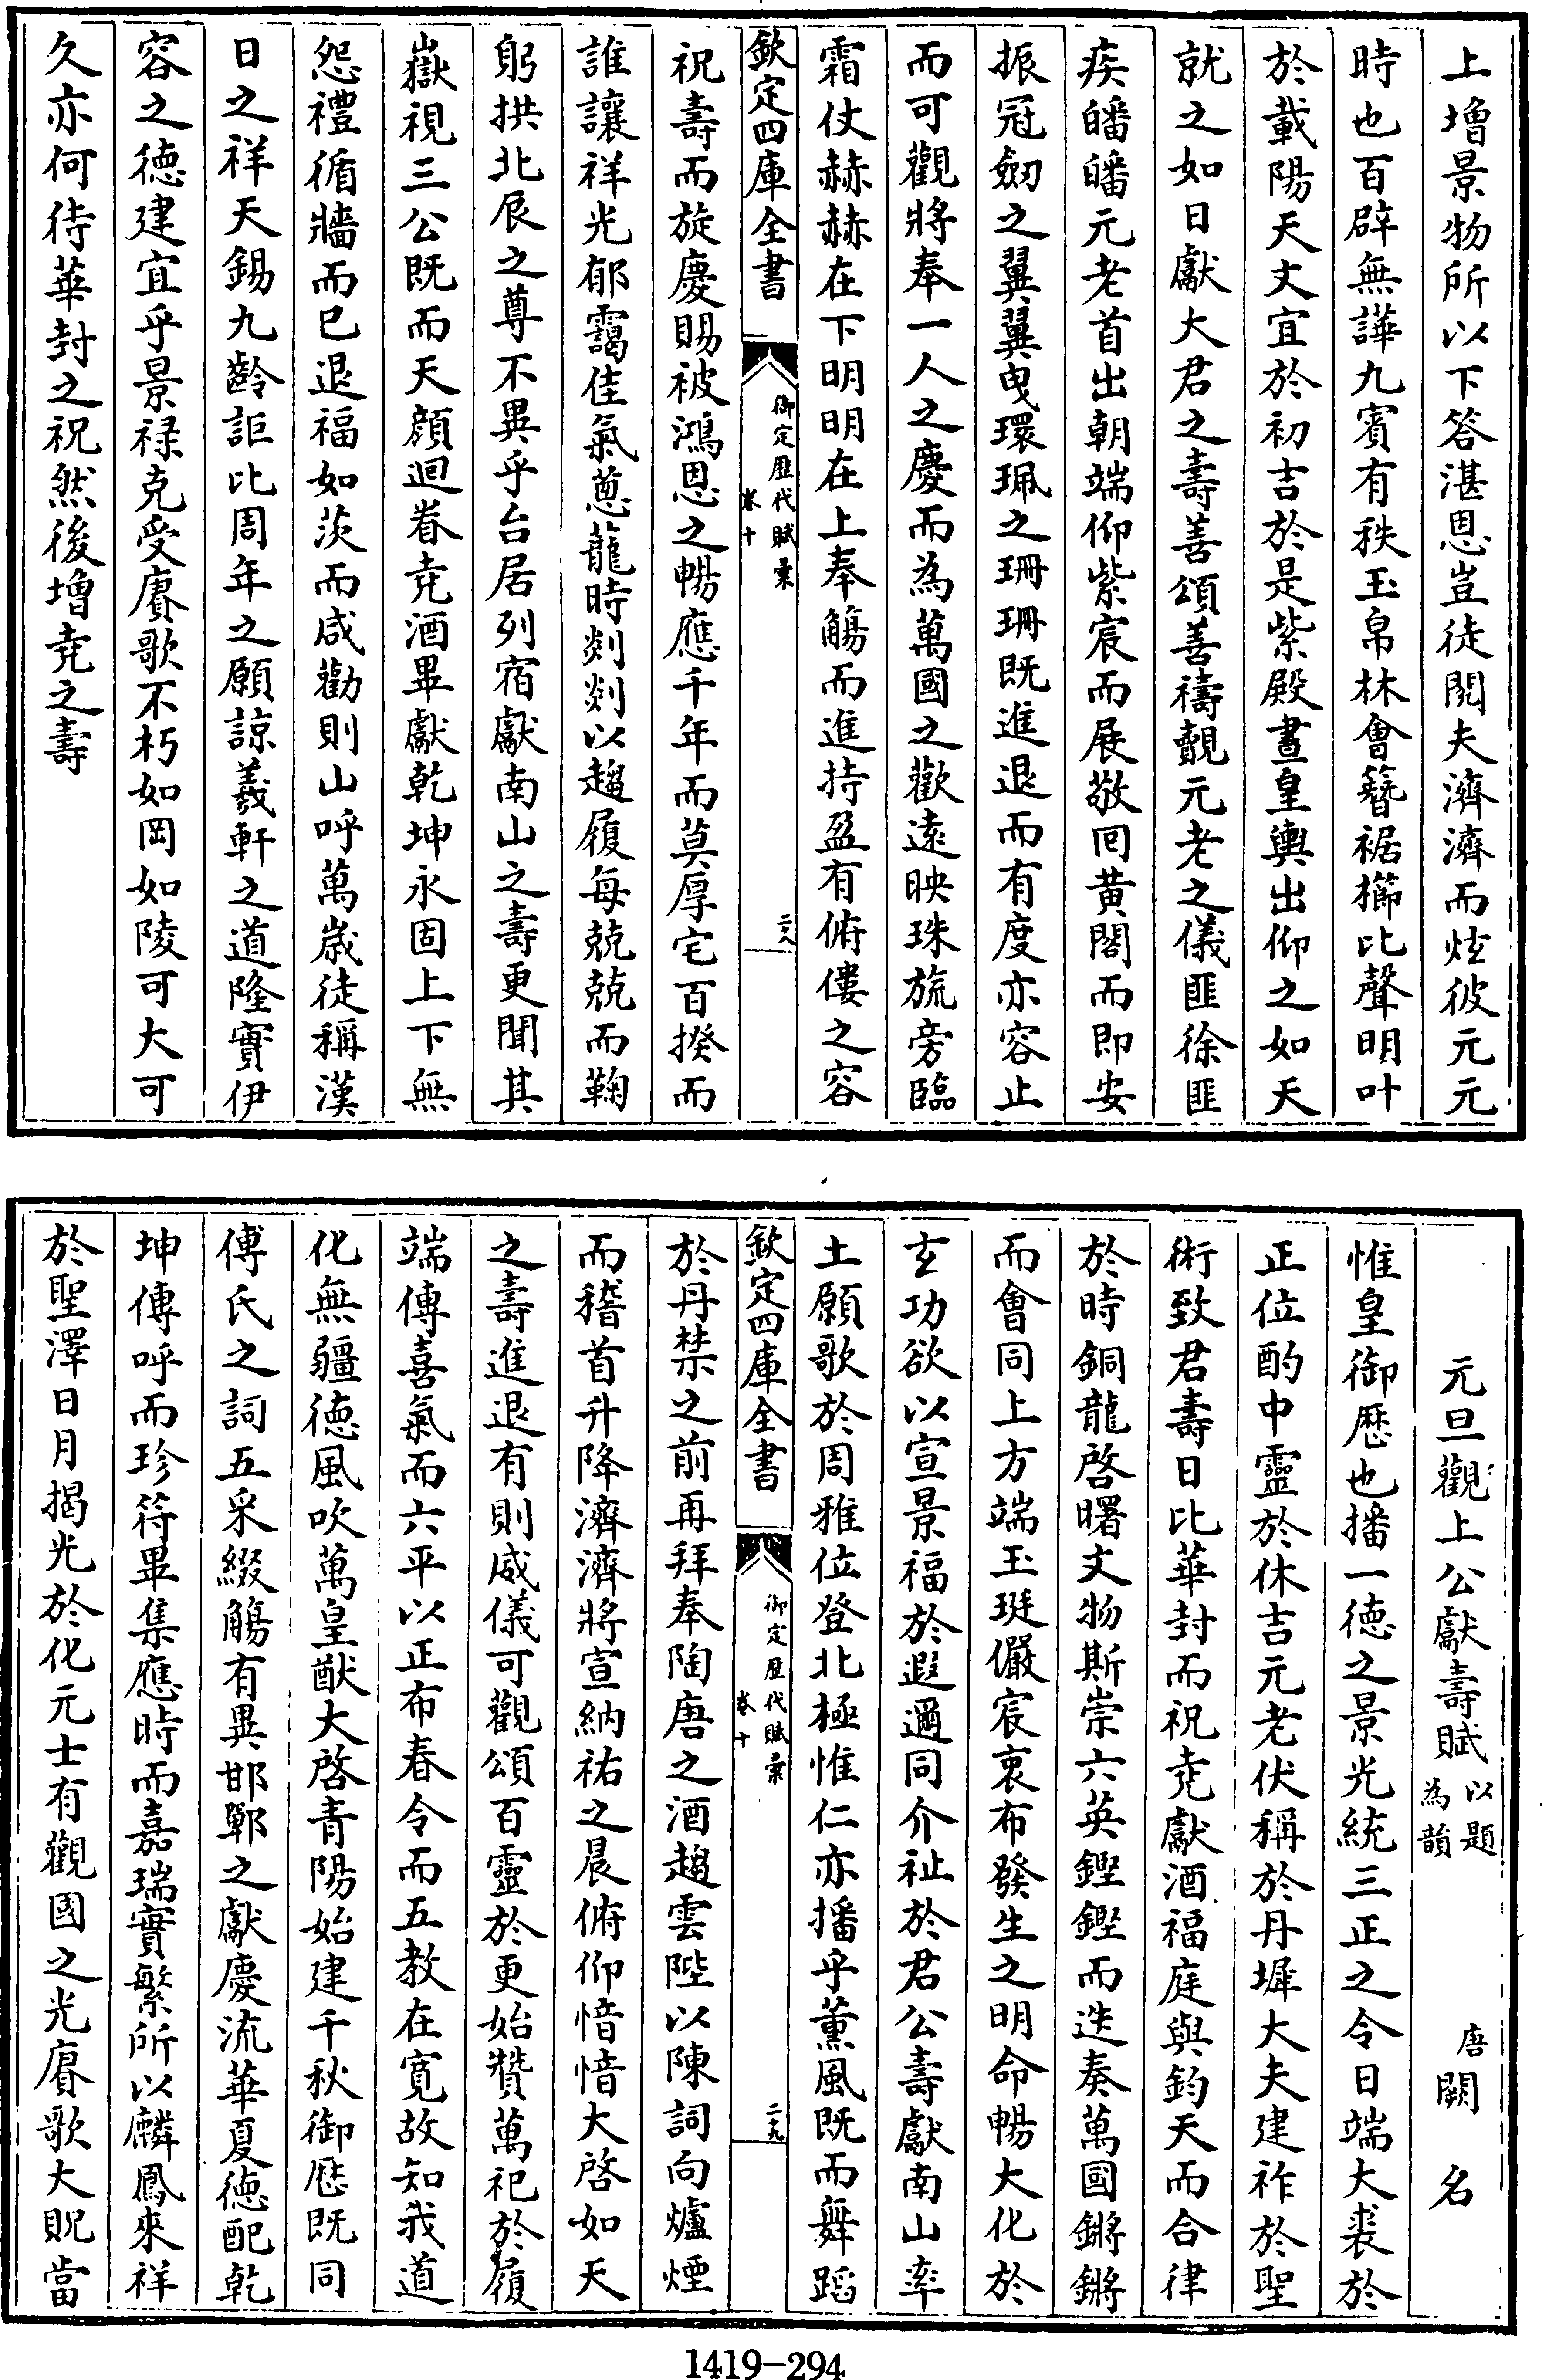 上增景物所以下答湛恩豈徒閱夫濟濟而炫彼元元
時也百辟無譁九賓有秩玉帛林會簪裾櫛比聲明叶
於載陽天文宜於初吉於是紫殿晝皇輿出仰之如天
就之如日獻大君之壽善頌善禱覿元老之儀匪徐匪
疾皤皤元老首出朝端仰紫宸而展敬囘黄閣而即安
振冠劒之翼翼曵環珮之珊珊既進退而有度亦容止
而可觀將奉一人之慶而為萬國之歡遠映珠旒旁臨
霜仗赫赫在下明明在上奉觴而進持盈有俯僂之容
欽定四庫全書
御定歴代賦彙
卷十
二六
祝壽而旋慶賜被鴻恩之暢應千年而莫厚宅百揆而
誰讓祥光郁靄佳氣蔥蘢時剡剡以趨履每兢兢而鞠
躬拱北辰之尊不異乎台居列宿獻南山之壽更聞其
嶽視三公既而天顔迴眷尭酒畢獻乾坤永固上下無
怨禮循牆而已退福如茨而咸勸則山呼萬歳徒稱漢
日之祥天錫九齡詎比周年之願諒羲軒之道隆實伊
容之德建宜乎景禄克受賡歌不朽如岡如陵可大可
久亦何待華封之祝然後增尭之壽
元旦觀上公獻壽賦 以題為韻 唐 闕名
惟皇御厯也播一德之景光統三正之令日端大裘於
正位酌中靈於休吉元老伏稱於丹墀大夫建祚於聖
術致君壽日比華封而祝尭獻酒福庭與鈞天而合律
於時銅龍啓曙文物斯崇六英鏗鏗而迭奏萬國鏘鏘
而會同上方端玉珽儼宸衷布發生之明命暢大化於
玄功欲以宣景福於遐邇同介祉於君公壽獻南山率
土願歌於周雅位登北極惟仁亦播乎薰風既而舞蹈
欽定四庫全書
御定歴代賦彙
卷十
二九
於丹禁之前再拜奉陶唐之酒趨雲陛以陳詞向爐煙
而稽首升降濟濟將宣納祐之晨俯仰愔愔大啓如天
之壽進退有則威儀可觀頌百靈於更始贊萬祀於履
端傳喜氣而六平以正布春令而五教在寛故知我道
化無疆德風吹萬皇猷大啓青陽始建千秋御厯既同
傅氏之詞五采綴觴有異邯鄲之獻慶流華夏德配乾
坤傳呼而珍符畢集應時而嘉瑞實繁所以麟鳳來祥
於聖澤日月揭光於化元士有觀國之光賡歌大貺當
1419-294